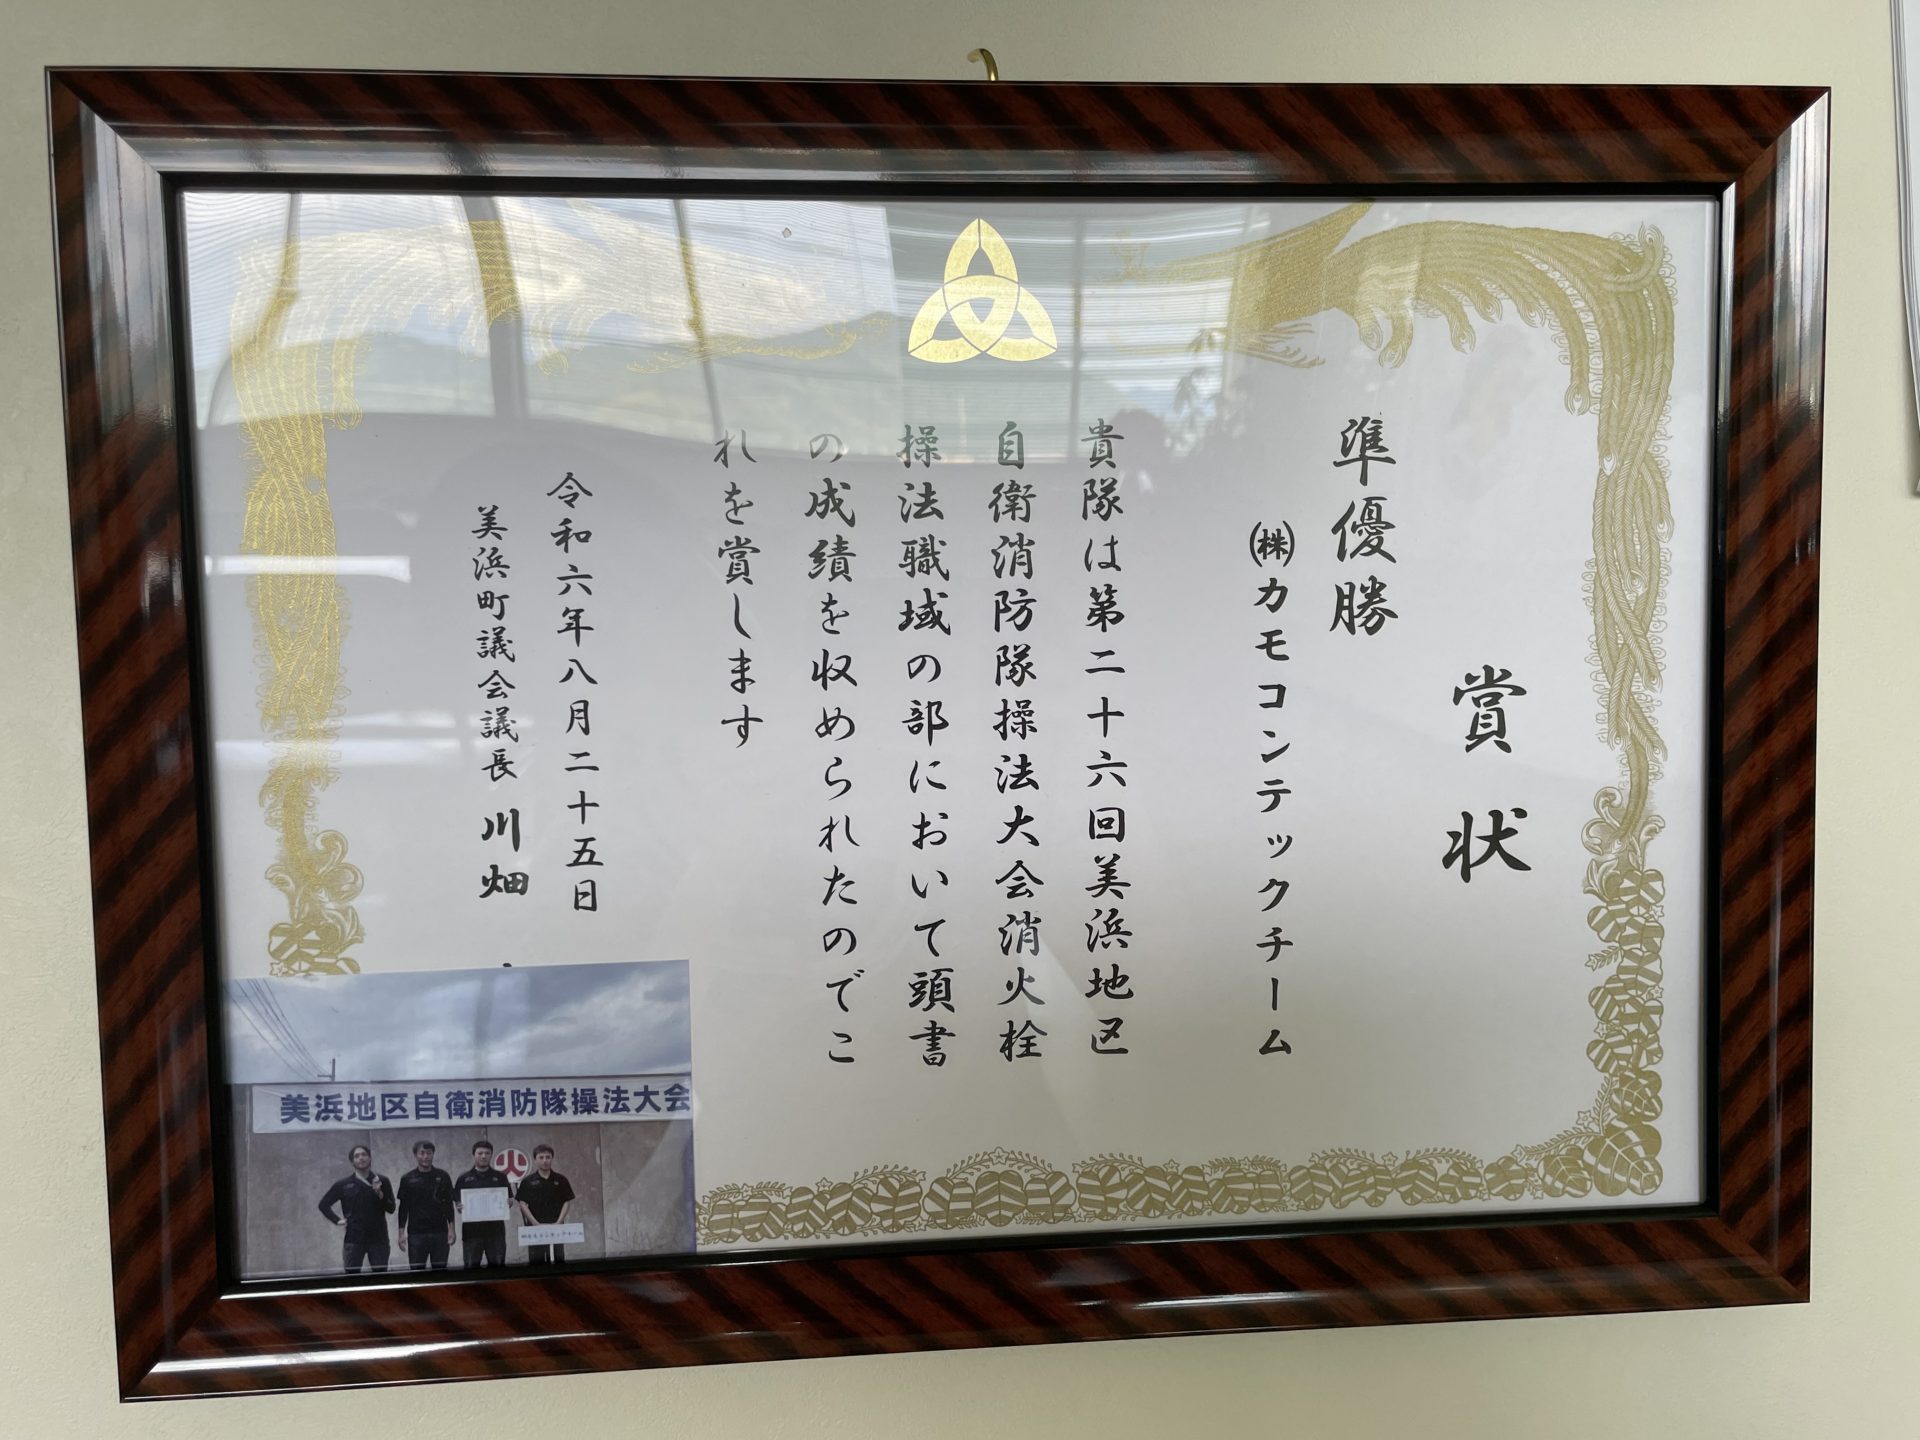 賞状
準優勝
㈱カモコンテックチーム
貴隊は第二十六回美浜地区
自衛消防隊操法大会消火栓
操法職域の部において頭書
の成績を収められたのでこ
れを賞します
令和六年八月二十五日
美浜町議会議長 川畑
美浜地区自衛消防隊操法大会
火